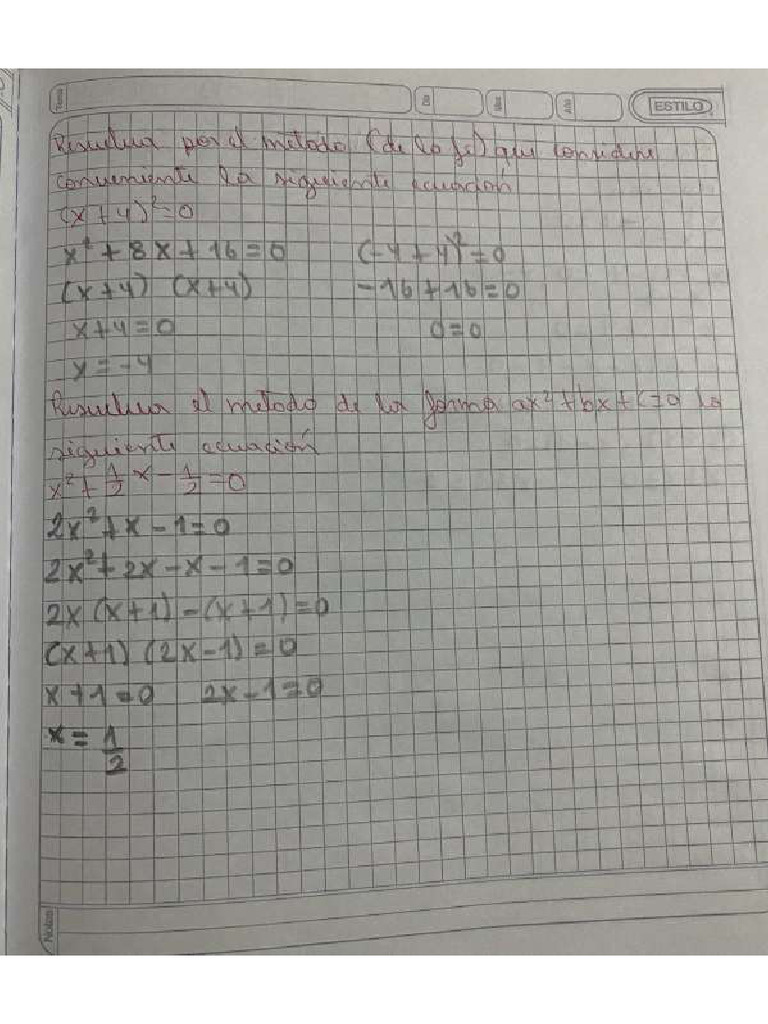 Tema
Día
Mes
Año
ESTILO
Resuelva por el metodo (de la fe) que considere
conveniente la siguiente ecuación
(x+4)²=0
x²+8x+16=0
(-4+4)²=0
(x+4) (x+4)
-16+16=0
x+4=0
0=0
x=-4
Resuelva el metodo de la forma ax²+bx+c=0 la
siguiente ecuación
x²+1/2 x-1/2=0
2x²+x-1=0
2x²+2x-x-1=0
2x(x+1)-(x+1)=0
(x+1) (2x-1)=0
x+1=0 2x-1=0
x=1/2
Notas